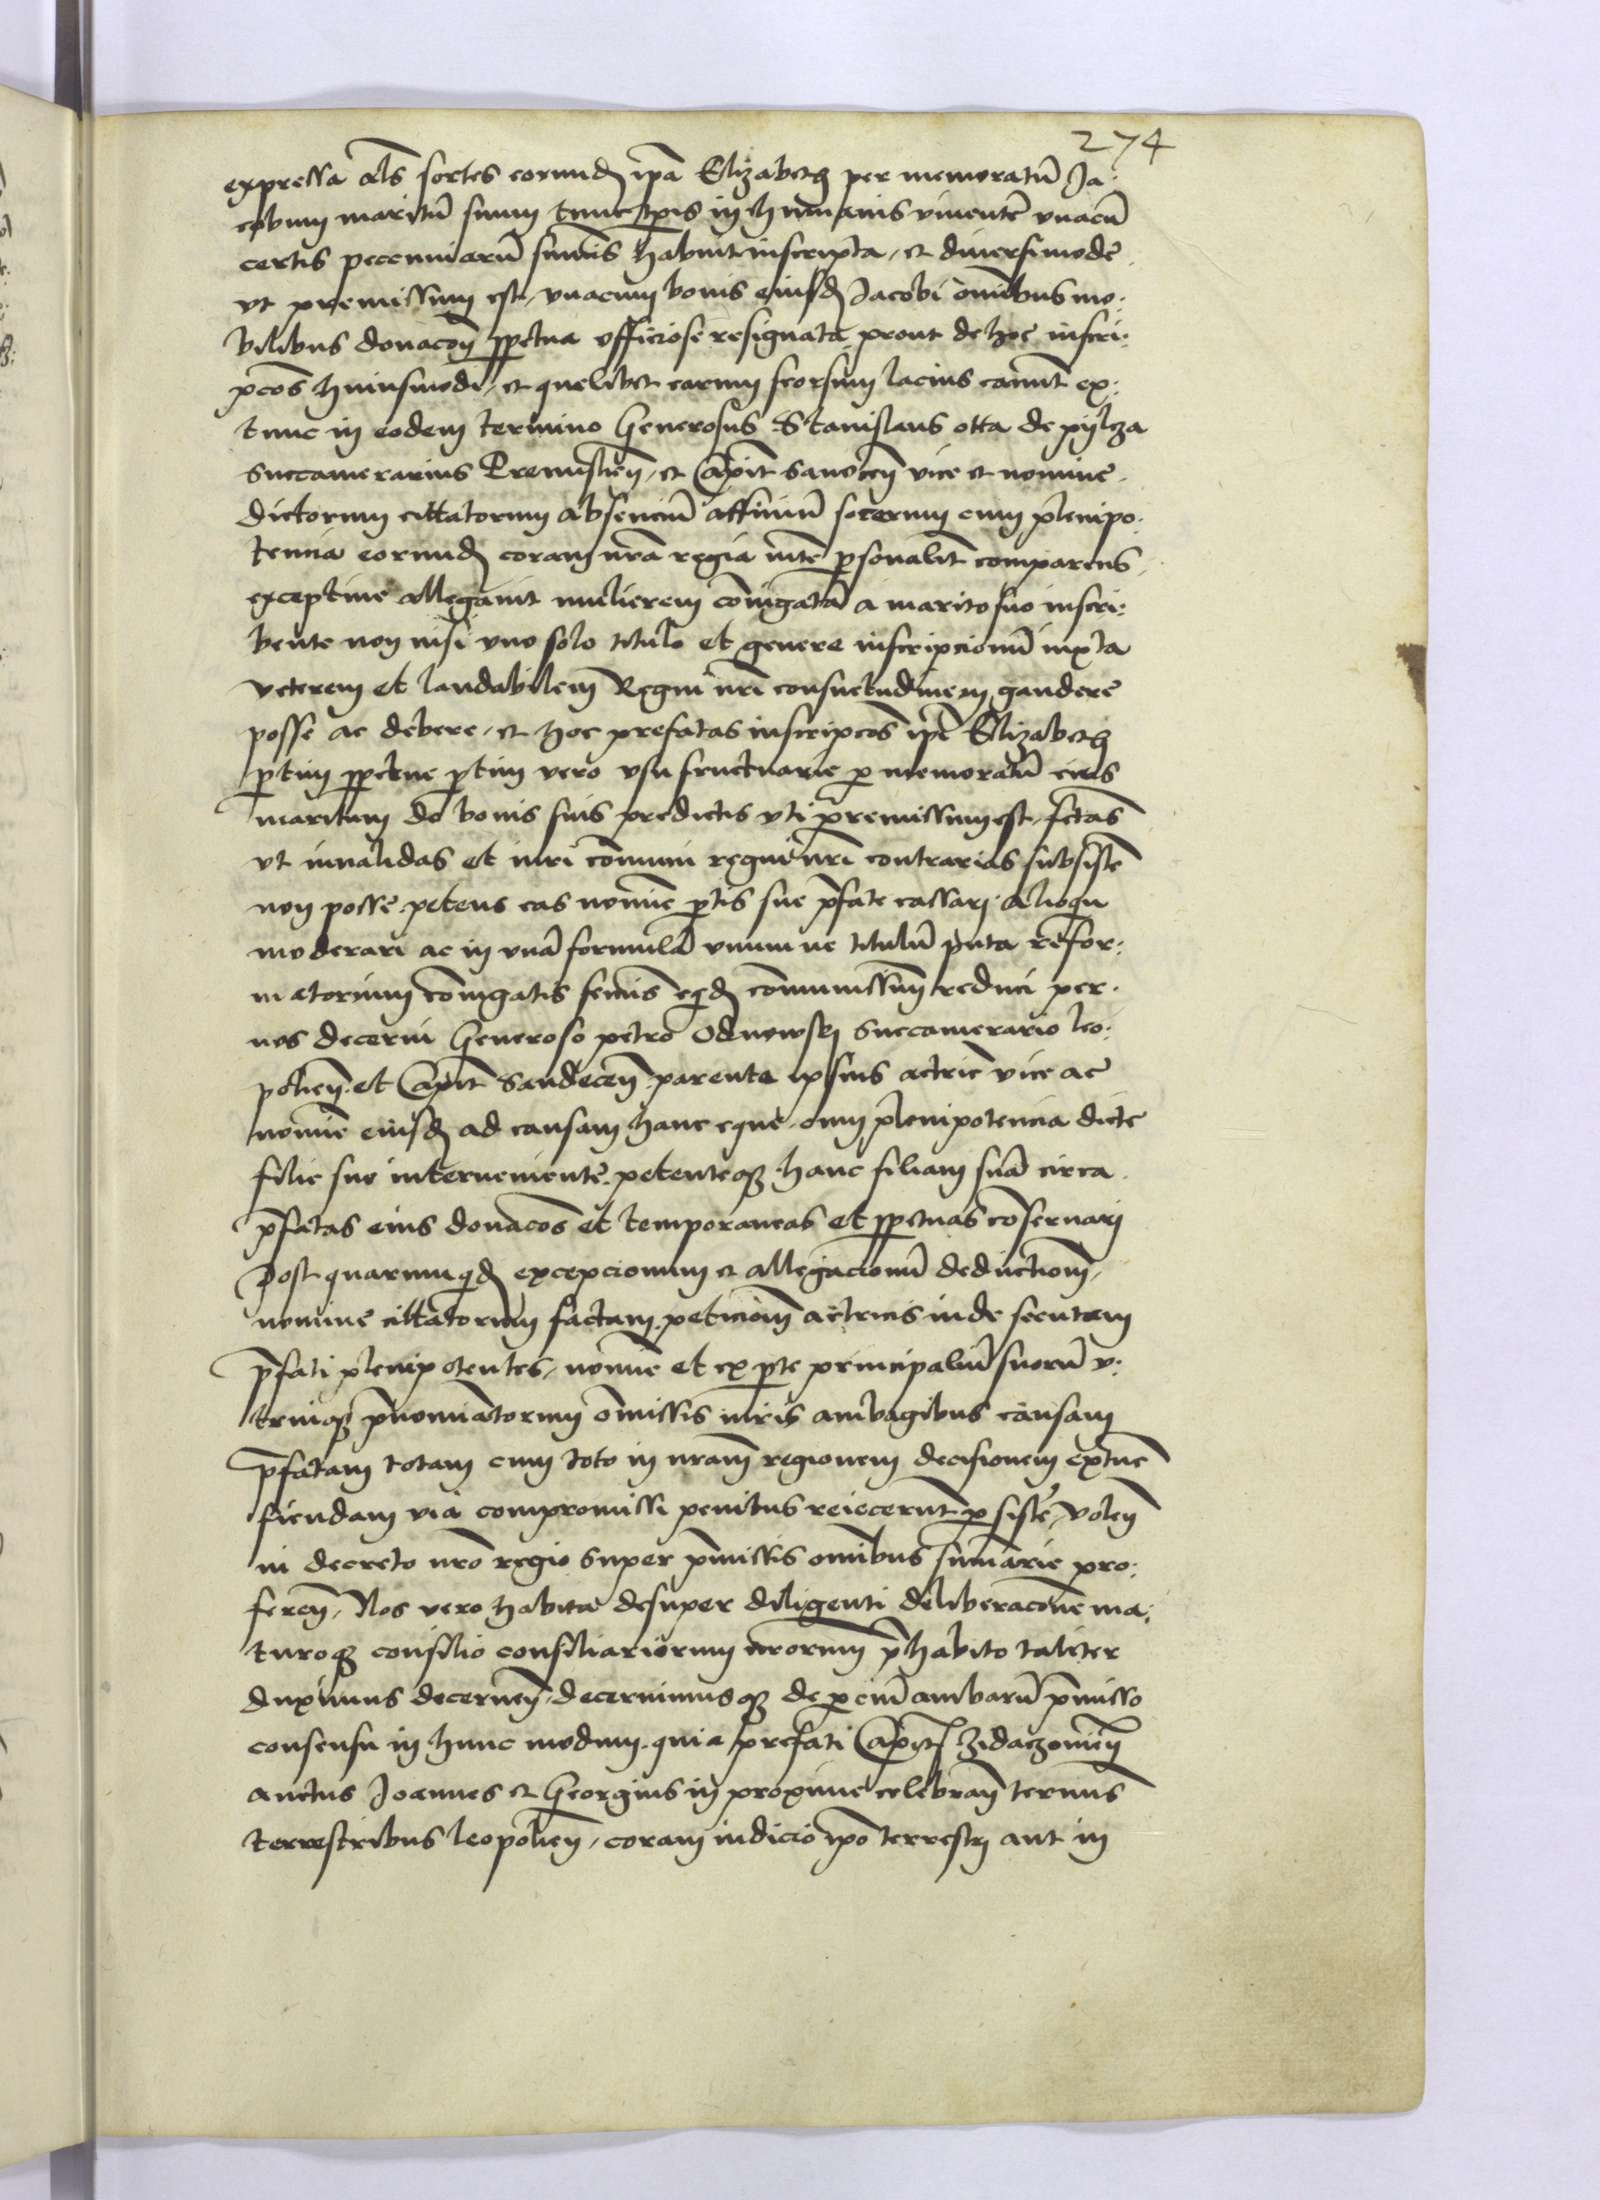 274
expressa als sortes eorund ipa Elizabeth per memoratu Ja:
cobum maritu suum tunc tpis in humanis viuente vnacu
certis pecuniaru sumis habuit inscripta, et diuersimode
vt premissum est, vnacum bonis eiusd Jacobi omibus mo:
bilibus donacoe ppetua officiose resignata, prout de hoc inscri:
pcoes huiusmodi, et quelibet earum seorsum lacius canut ex:
tunc in eodem termino Generosus Stanislaus otta de pylcza
Succamerarius Premislien, et Capit Sanocen vice et nomine
dictorum cittatorum absenciu affiniu socerum cum plenipo:
tencia eorund coram nra regia mte psonalit comparens
exceptiue allegauit mulierem coniugata a marito suo inscri:
bente non nisi vno solo titulo et genere inscripcionu iuxta
veterem et laudabilem Regni nri consuetudinem gaudere
posse ac debere, et hoc prefatas inscripcoes ipe Elizabeth
ptim ppetue ptim vero vsufructuarie p memoratu eius
maritum de bonis suis predictis vti premissum est, fctas
vt inualidas et iuri comuni regni nri contrarias subsiste
non posse, petens eas nomine ptis sue pfate cassari alioqu
moderari ac in vna formula vnum ve titulu puta refor:
matorium coniugatis femis eqd comunissimu reduci per
nos decerni Generoso petro Odnowski Succamerario leo:
polien et Capit Sandecen parente ipsius actricis vice ac
nomine eiusd ad causam hanc eque, cum plenipotencia dicte
filie sue interueniente, petenteq hanc filiam sua circa
pfatas eius donacoes et temporaneas et ppetuas conseruari
Post quarumqd excepcionum et allegacionu deductiom,
nomine cittatorum factam, peticiom actricis inde secutam
pfati plenipotentes, nomine et ex pte principaliu suoru v:
triusq pnominatorum omissis iuris ambagibus causam
pfatam totam cum toto in nram regionem decisionem extunc
fiendam via compromissi penitus reiecerut p siste, volen
in decreto nro regio super pmissis omibus sumarie pro:
feren, Nos vero habita desuper diligenti deliberacone ma:
turoq consilio consiliariorum nrorum phabito taliter
duximus decernen, decernimusq de pciu ambaru pmisso
consensu in hunc modum, quia prefati Capit Zidaczowien
auctus Joannes et Georgius in proxime celebran termis
terrestribus leopolien, coram iudicio ipo terrestri aut in